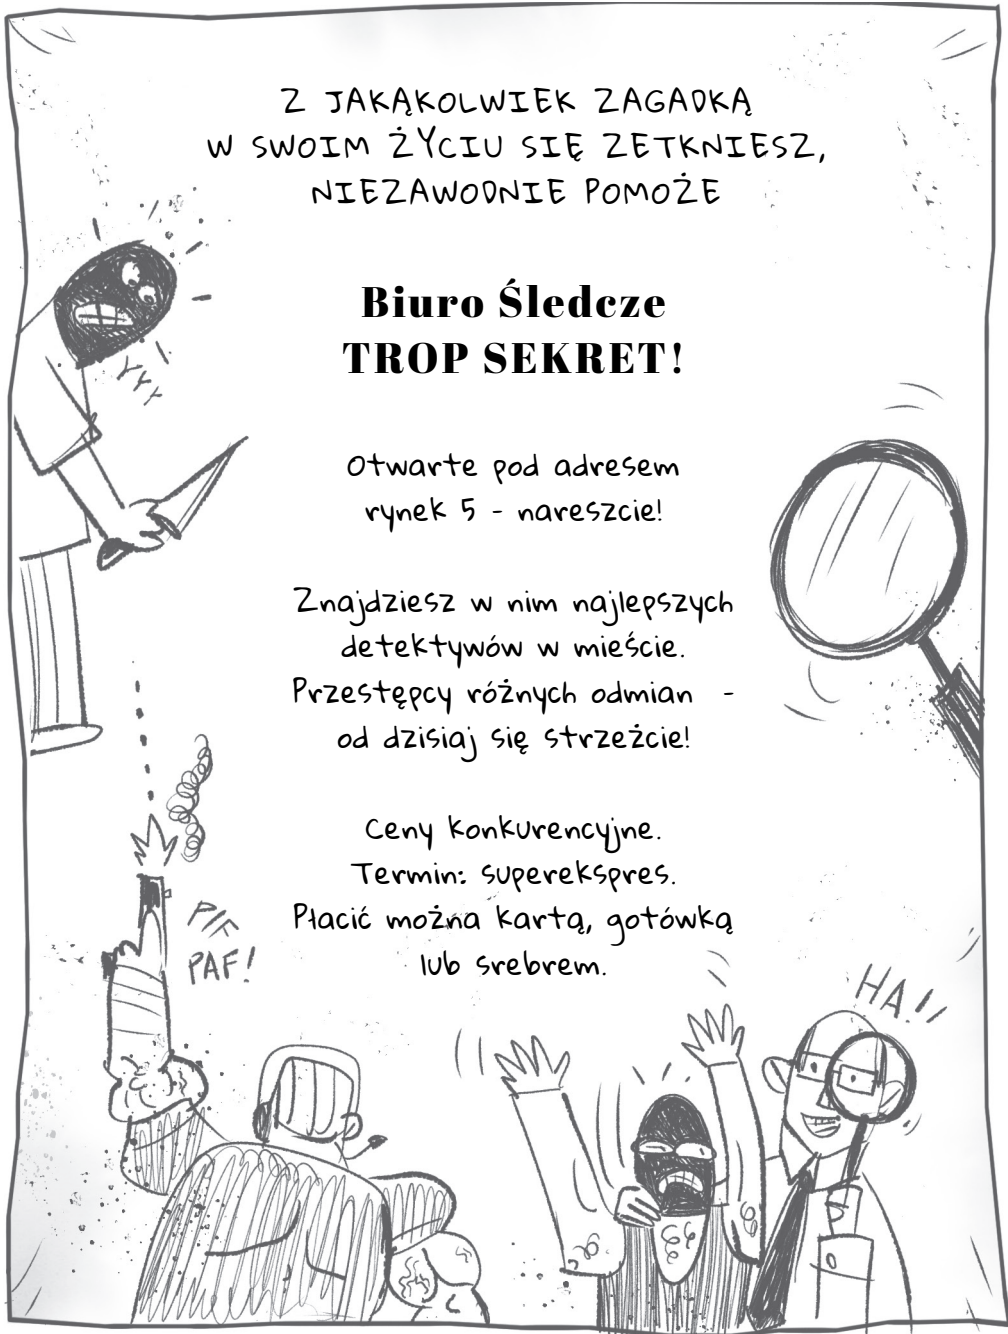 Z JAKĄKOLWIEK ZAGADKĄ
W SWOIM ŻYCIU SIĘ ZETKNIESZ,
NIEZAWODNIE POMOŻE
Biuro Śledcze
TROP SEKRET!
YYY
Otwarte pod adresem
rynek 5 - nareszcie!
Znajdziesz w nim najlepszych
detektywów w mieście.
Przestępcy różnych odmian -
od dzisiaj się strzeżcie!
Ceny konkurencyjne.
Termin: superekspres.
Płacić można kartą, gotówką
lub srebrem.
PIF
PAF!
HA!!